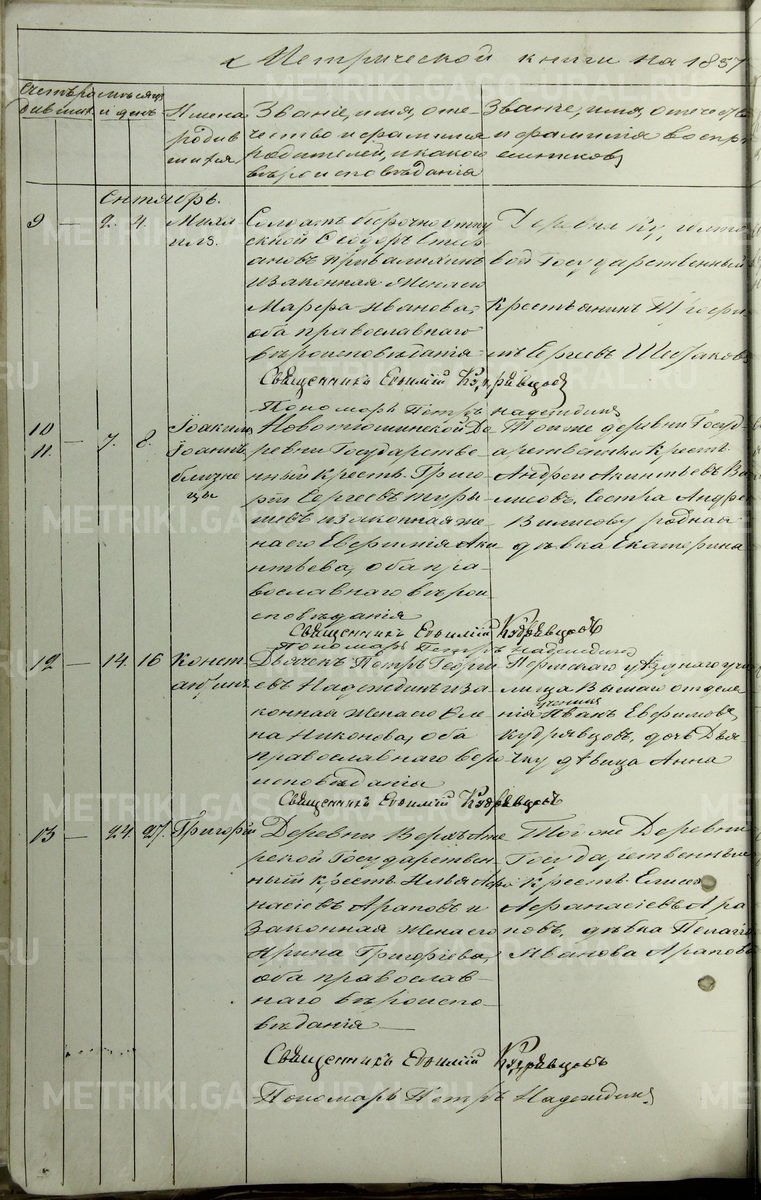 Метрической книги на 1857
Счетъ родившихся
мѣсяцъ и день
Имена родившихся
Званіе, имя, отечество и фамилія родителей, и какого вѣроисповѣданія
Званіе, имя, отечество и фамилія воспріемниковъ
Сентябрь.
9 — 2. 4. Михаилъ
Ѳедоръ
ановъ
и законная жена его
Марѳа Иванова,
оба православнаго
вѣроисповѣданія
Деревни
вой Государственный
Крестьянинъ
Сергеевъ
Священникъ Евѳимій Кудрявцовъ
Пономарь Петръ Надеждинъ
10
11. — 7. 8. Іоакимъ,
Іоаннъ
близне
цы
Де
ревни Государстве
нный Крестъ. Григо
рій Сергеевъ
и законная же
на его Евфимія Аки
нтьева, оба пра
вославнаго вѣрои
сповѣданія
Той же деревни Госуд
арственный Крестъ.
Андрей Акинтьевъ
Сестра Андрею
родная
дѣвка Екатерина
Священникъ Евѳимій Кудрявцовъ
Пономарь Петръ Надеждинъ
12 — 14. 16 Конст
антинъ
Дьячекъ Петръ Георгі
евъ Надеждинъ и за
конная жена его Еле
на Никонова, оба
православнаго веро
исповѣданія
Пермскаго уѣзднаго учи
лища Вышаго отделе
нія ученикъ Иванъ Евфимовъ
Кудрявцовъ, дочь Дья
чку дѣвица Анна
Священникъ Евѳимій Кудрявцовъ
13 — 24. 27. Григорій
Деревни
рской Государствен
ный крестъ. Илья Афа
насіевъ Араповъ и
законная жена его
Ирина Григоріева,
оба православ-
наго вѣроиспо-
вѣданія
Той же Деревни
Государственный
Крестъ. Елисей
Афанасіевъ Ара
повъ, дѣвка Пелагія
Иванова Арапова
Священникъ Евѳимій Кудрявцовъ
Пономарь Петръ Надеждинъ
METRIKI.GASO-URAL.RU